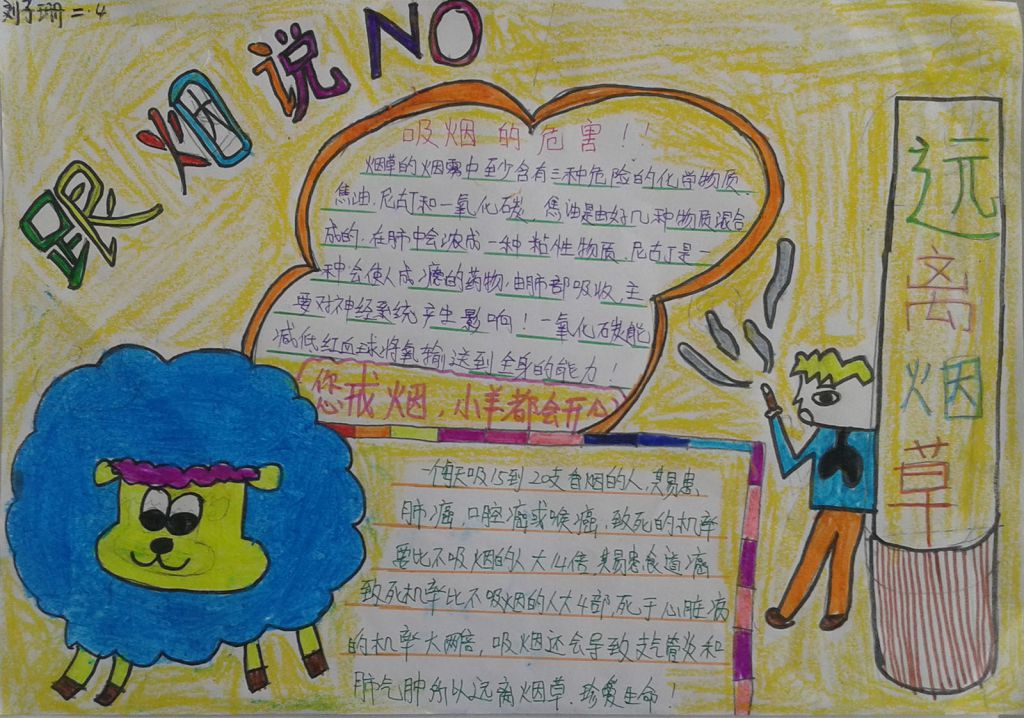 刘子珊 二.4
跟烟说NO
吸烟的危害!!
烟草的烟雾中至少含有三种危险的化学物质
焦油.尼古丁和一氧化碳.焦油是由好几种物质混合
成的.在肺中会浓成一种粘性物质.尼古丁是一
种会使人成瘾的药物.由肺部吸收,主
要对神经系统产生影响!一氧化碳能
减低红血球将氧输送到全身的能力!
您戒烟,小羊都会开心
一个每天吸15到20支香烟的人,其易患
肺癌,口腔癌或喉癌,致死的机率
要比不吸烟的人大14倍其易患食道癌
致死机率比不吸烟的人大4部,死于心脏病
的机率大两倍,吸烟还会导致支气管炎和
肺气肿所以远离烟草.珍爱生命!
远离烟草